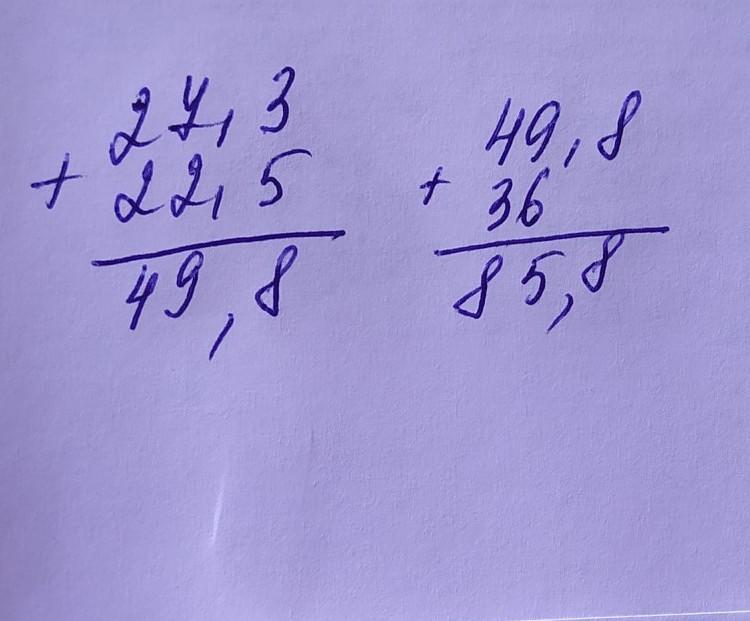 27,3
+ 22,5
49,8
49,8
+ 36
85,8